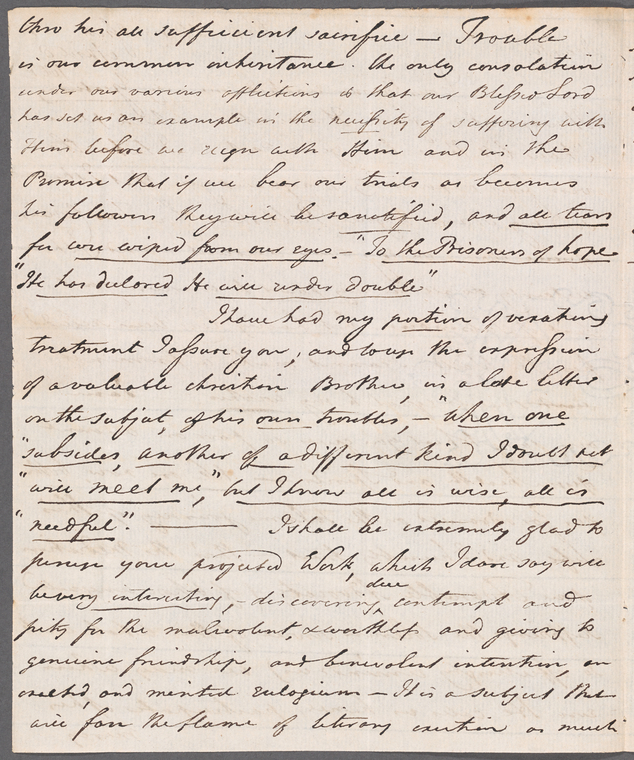 thro his all sufficient sacrifice — Trouble
is our common inheritance. the only consolation
under our various afflictions is that our Blessed Lord
has set us an example in the necessity of suffering with
Him before we reign with Him and in the
Promise that if we bear our trials as becomes
his followers they will be sanctified, and all tears
for ever wiped from our eyes. — "To the Prisoners of hope
"He has declared He will render double"
I have had my portion of vexatious
treatment I assure you, and to use the expression
of a valuable christian Brother, in a late letter
on the subject, of his own troubles, — "when one
"subsides, another of a different kind I doubt not
"will meet me," but I know all is wise, all is
"needful". —— I shall be extremely glad to
peruse your projected Work, which I dare say will
be very interesting, — discovering due contempt and
pity for the malevolent, & worthless and giving to
genuine friendship, and benevolent intention, an
and merited eulogium — It is a subject that
will fan the flame of literary exertion as much